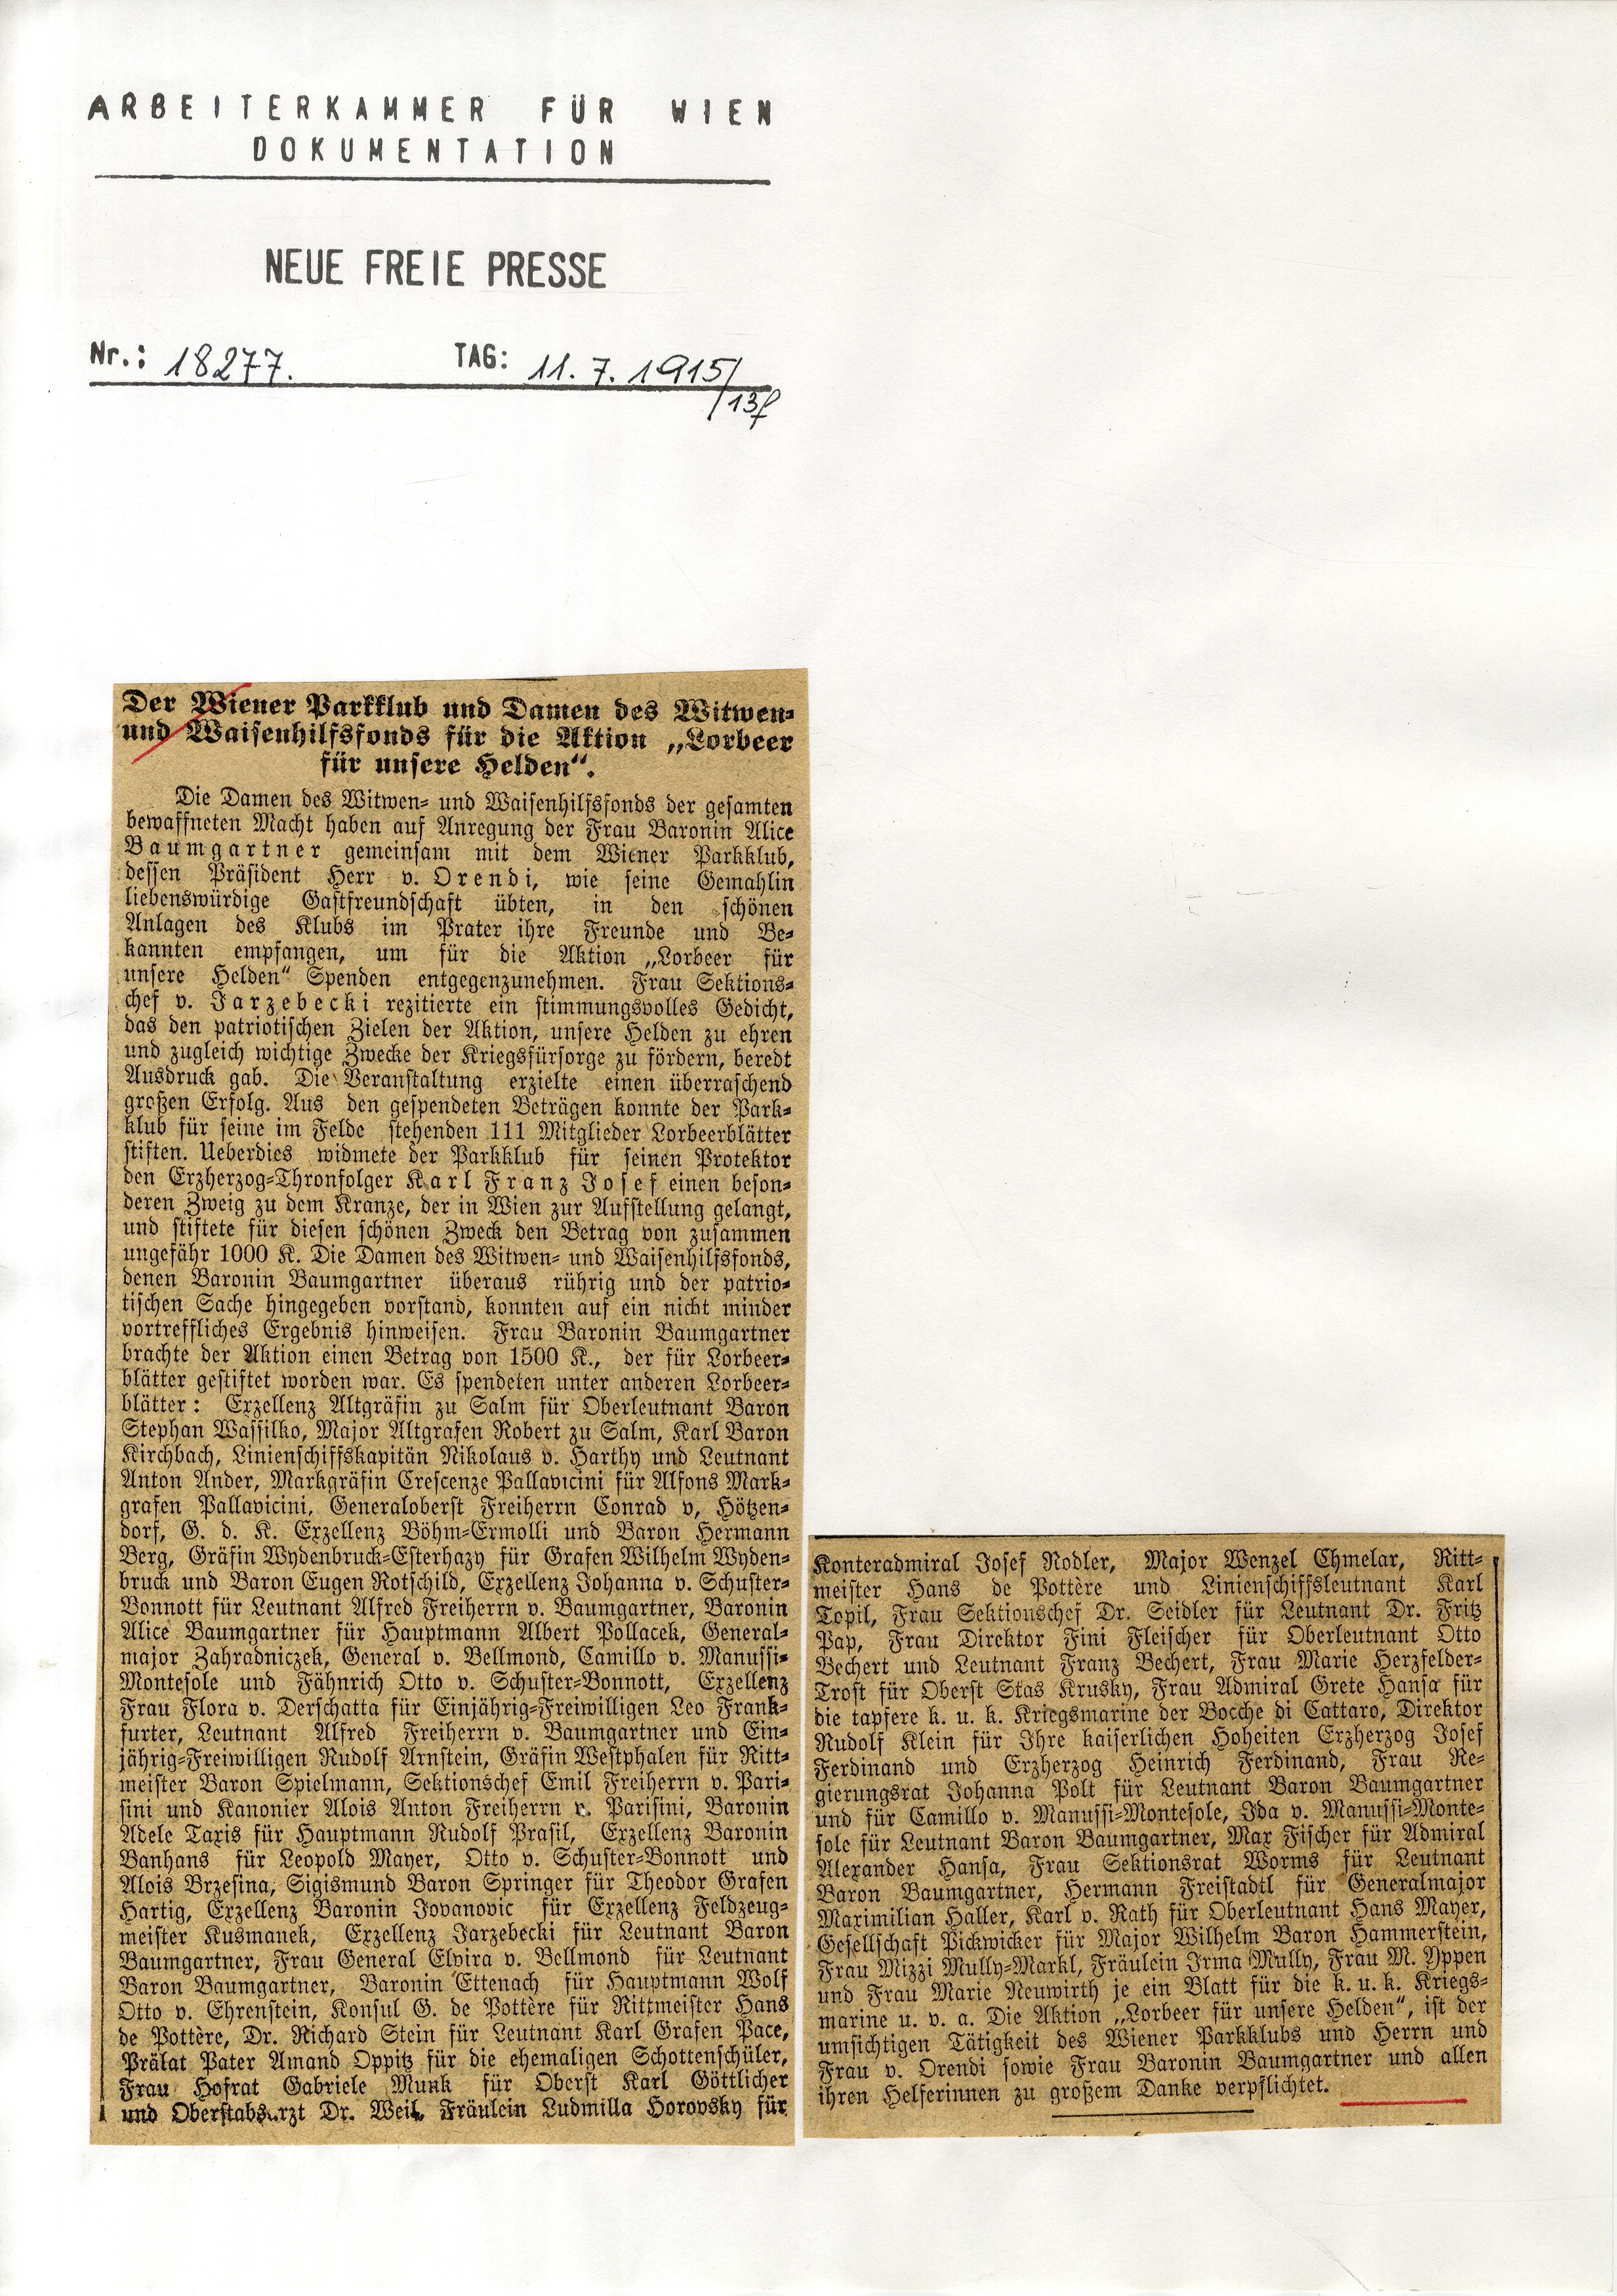 ARBEITERKAMMER FÜR WIEN
DOKUMENTATION
NEUE FREIE PRESSE
Nr.: 18277. TAG: 11. 7. 1915/
13f
Der Wiener Parkklub und Damen des Witwen-
und Waisenhilfsfonds für die Aktion „Lorbeer
für unsere Helden“.
Die Damen des Witwen- und Waisenhilfsfonds der gesamten
bewaffneten Macht haben auf Anregung der Frau Baronin Alice
Baumgartner gemeinsam mit dem Wiener Parkklub,
dessen Präsident Herr v. Orendi, wie seine Gemahlin
liebenswürdige Gastfreundschaft übten, in den schönen
Anlagen des Klubs im Prater ihre Freunde und Be-
kannten empfangen, um für die Aktion „Lorbeer für
unsere Helden“ Spenden entgegenzunehmen. Frau Sektions-
chef v. Jarzebecki rezitierte ein stimmungsvolles Gedicht,
das den patriotischen Zielen der Aktion, unsere Helden zu ehren
und zugleich wichtige Zwecke der Kriegsfürsorge zu fördern, beredt
Ausdruck gab. Die Veranstaltung erzielte einen überraschend
großen Erfolg. Aus den gespendeten Beträgen konnte der Park-
klub für seine im Felde stehenden 111 Mitglieder Lorbeerblätter
stiften. Ueberdies widmete der Parkklub für seinen Protektor
den Erzherzog-Thronfolger Karl Franz Josef einen beson-
deren Zweig zu dem Kranze, der in Wien zur Aufstellung gelangt,
und stiftete für diesen schönen Zweck den Betrag von zusammen
ungefähr 1000 K. Die Damen des Witwen- und Waisenhilfsfonds,
denen Baronin Baumgartner überaus rührig und der patrio-
tischen Sache hingegeben vorstand, konnten auf ein nicht minder
vortreffliches Ergebnis hinweisen. Frau Baronin Baumgartner
brachte der Aktion einen Betrag von 1500 K., der für Lorbeer-
blätter gestiftet worden war. Es spendeten unter anderen Lorbeer-
blätter: Exzellenz Altgräfin zu Salm für Oberleutnant Baron
Stephan Wassilko, Major Altgrafen Robert zu Salm, Karl Baron
Kirchbach, Linienschiffskapitän Nikolaus v. Harthy und Leutnant
Anton Ander, Markgräfin Crescenze Pallavicini für Alfons Mark-
grafen Pallavicini, Generaloberst Freiherrn Conrad v. Hötzen-
dorf, G. d. K. Exzellenz Böhm-Ermolli und Baron Hermann
Berg, Gräfin Wydenbruck-Esterhazy für Grafen Wilhelm Wyden-
bruck und Baron Eugen Rotschild, Exzellenz Johanna v. Schuster-
Bonnott für Leutnant Alfred Freiherrn v. Baumgartner, Baronin
Alice Baumgartner für Hauptmann Albert Pollacek, General-
major Zahradniczek, General v. Bellmond, Camillo v. Manussi-
Montesole und Fähnrich Otto v. Schuster-Bonnott, Exzellenz
Frau Flora v. Derschatta für Einjährig-Freiwilligen Leo Frank-
furter, Leutnant Alfred Freiherrn v. Baumgartner und Ein-
jährig-Freiwilligen Rudolf Arnstein, Gräfin Westphalen für Ritt-
meister Baron Spielmann, Sektionschef Emil Freiherrn v. Pari-
sini und Kanonier Alois Anton Freiherrn v. Parisini, Baronin
Adele Taxis für Hauptmann Rudolf Prasil, Exzellenz Baronin
Banhans für Leopold Mayer, Otto v. Schuster-Bonnott und
Alois Brzesina, Sigismund Baron Springer für Theodor Grafen
Hartig, Exzellenz Baronin Jovanovic für Exzellenz Feldzeug-
meister Kusmanek, Exzellenz Jarzebecki für Leutnant Baron
Baumgartner, Frau General Elvira v. Bellmond für Leutnant
Baron Baumgartner, Baronin Ettenach für Hauptmann Wolf
Otto v. Ehrenstein, Konsul G. de Pottère für Rittmeister Hans
de Pottère, Dr. Richard Stein für Leutnant Karl Grafen Pace,
Prälat Pater Amand Oppitz für die ehemaligen Schottenschüler,
Frau Hofrat Gabriele Munk für Oberst Karl Göttlicher
und Oberstabsarzt Dr. Weil, Fräulein Ludmilla Horovsky für
Konteradmiral Josef Rodler, Major Wenzel Chmelar, Ritt-
meister Hans de Pottère und Linienschiffsleutnant Karl
Topil, Frau Sektionschef Dr. Seidler für Leutnant Dr. Fritz
Pap, Frau Direktor Fini Fleischer für Oberleutnant Otto
Bechert und Leutnant Franz Bechert, Frau Marie Herzfelder-
Trost für Oberst Stas Krusky, Frau Admiral Grete Hansa für
die tapfere k. u. k. Kriegsmarine der Bocche di Cattaro, Direktor
Rudolf Klein für Ihre kaiserlichen Hoheiten Erzherzog Josef
Ferdinand und Erzherzog Heinrich Ferdinand, Frau Re-
gierungsrat Johanna Polt für Leutnant Baron Baumgartner
und für Camillo v. Manussi-Montesole, Ida v. Manussi-Monte-
sole für Leutnant Baron Baumgartner, Max Fischer für Admiral
Alexander Hansa, Frau Sektionsrat Worms für Leutnant
Baron Baumgartner, Hermann Freistadtl für Generalmajor
Maximilian Haller, Karl v. Rath für Oberleutnant Hans Mayer,
Gesellschaft Pickwicker für Major Wilhelm Baron Hammerstein,
Frau Mizzi Mully-Markl, Fräulein Irma Mully, Frau M. Yppen
und Frau Marie Neuwirth je ein Blatt für die k. u. k. Kriegs-
marine u. v. a. Die Aktion „Lorbeer für unsere Helden“, ist der
umsichtigen Tätigkeit des Wiener Parkklubs und Herrn und
Frau v. Orendi sowie Frau Baronin Baumgartner und allen
ihren Helferinnen zu großem Danke verpflichtet.